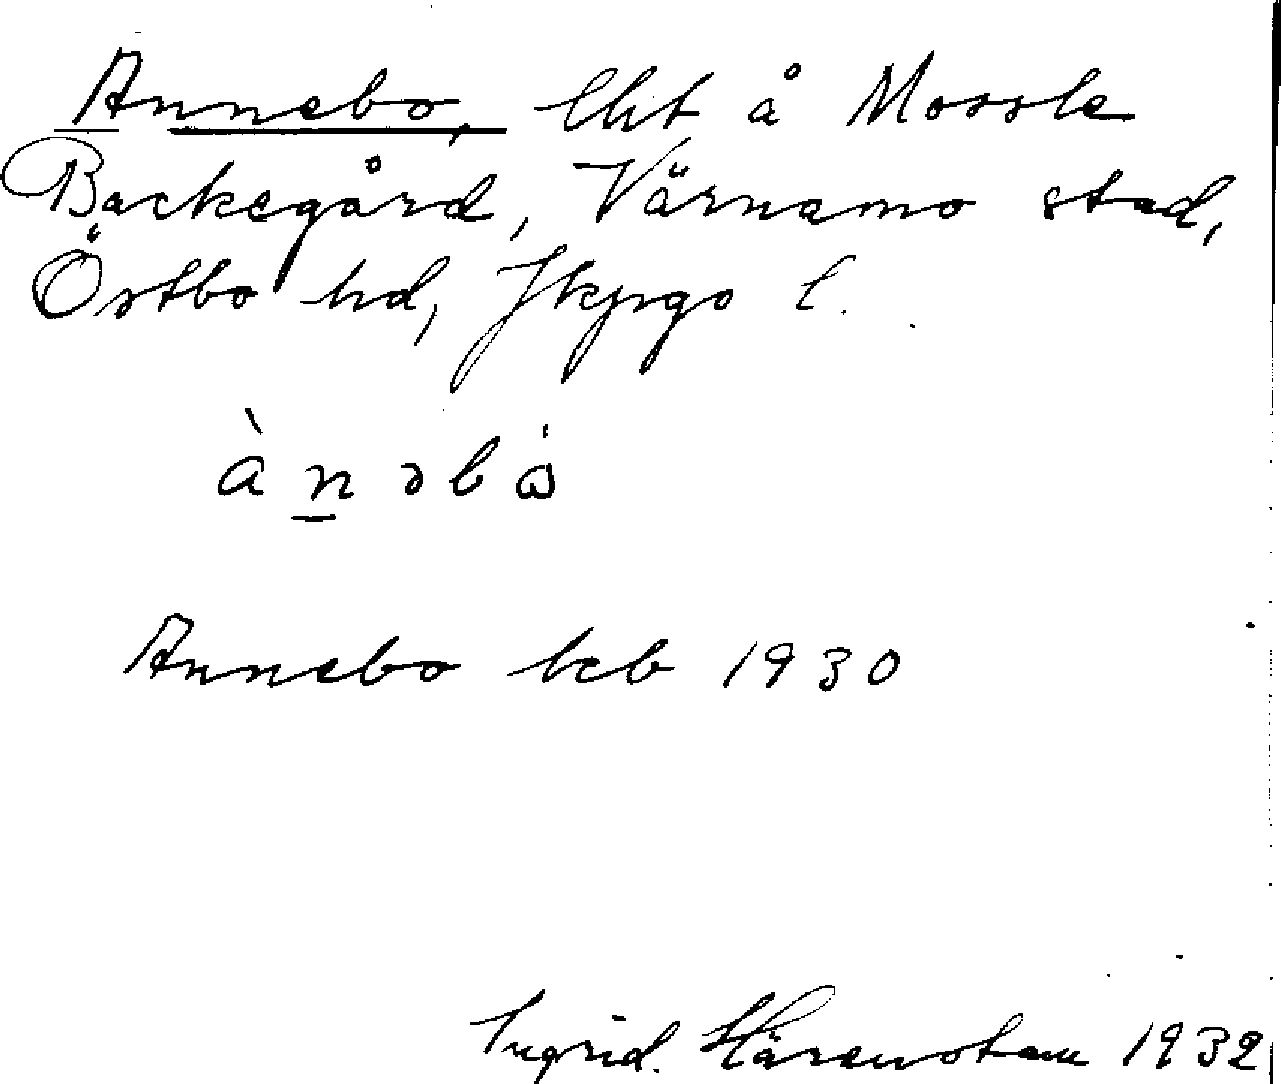 Annebo, lht å Mossle
Backegård, Värnamo stad,
Östbo hd, Jkpgs l.
àn̲əbɷ̇
Annebo kb 1930
Ingrid Härenstam 1932